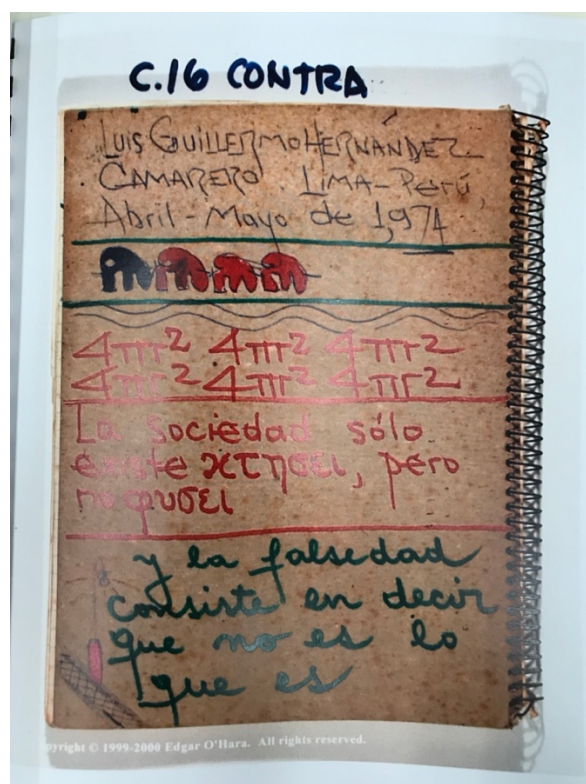 C.16 CONTRA
LUIS GUILLERMO HERNÁNDEZ
CAMARERO. LIMA-PERÚ,
Abril-Mayo de 1,974
4πr² 4πr² 4πr²
4πr² 4πr² 4πr²
La sociedad sólo
existe χτησει, pero
no φυσει
y la falsedad
consiste en decir
que no es lo
que es
yright © 1999-2000 Edgar O'Hara. All rights reserved.